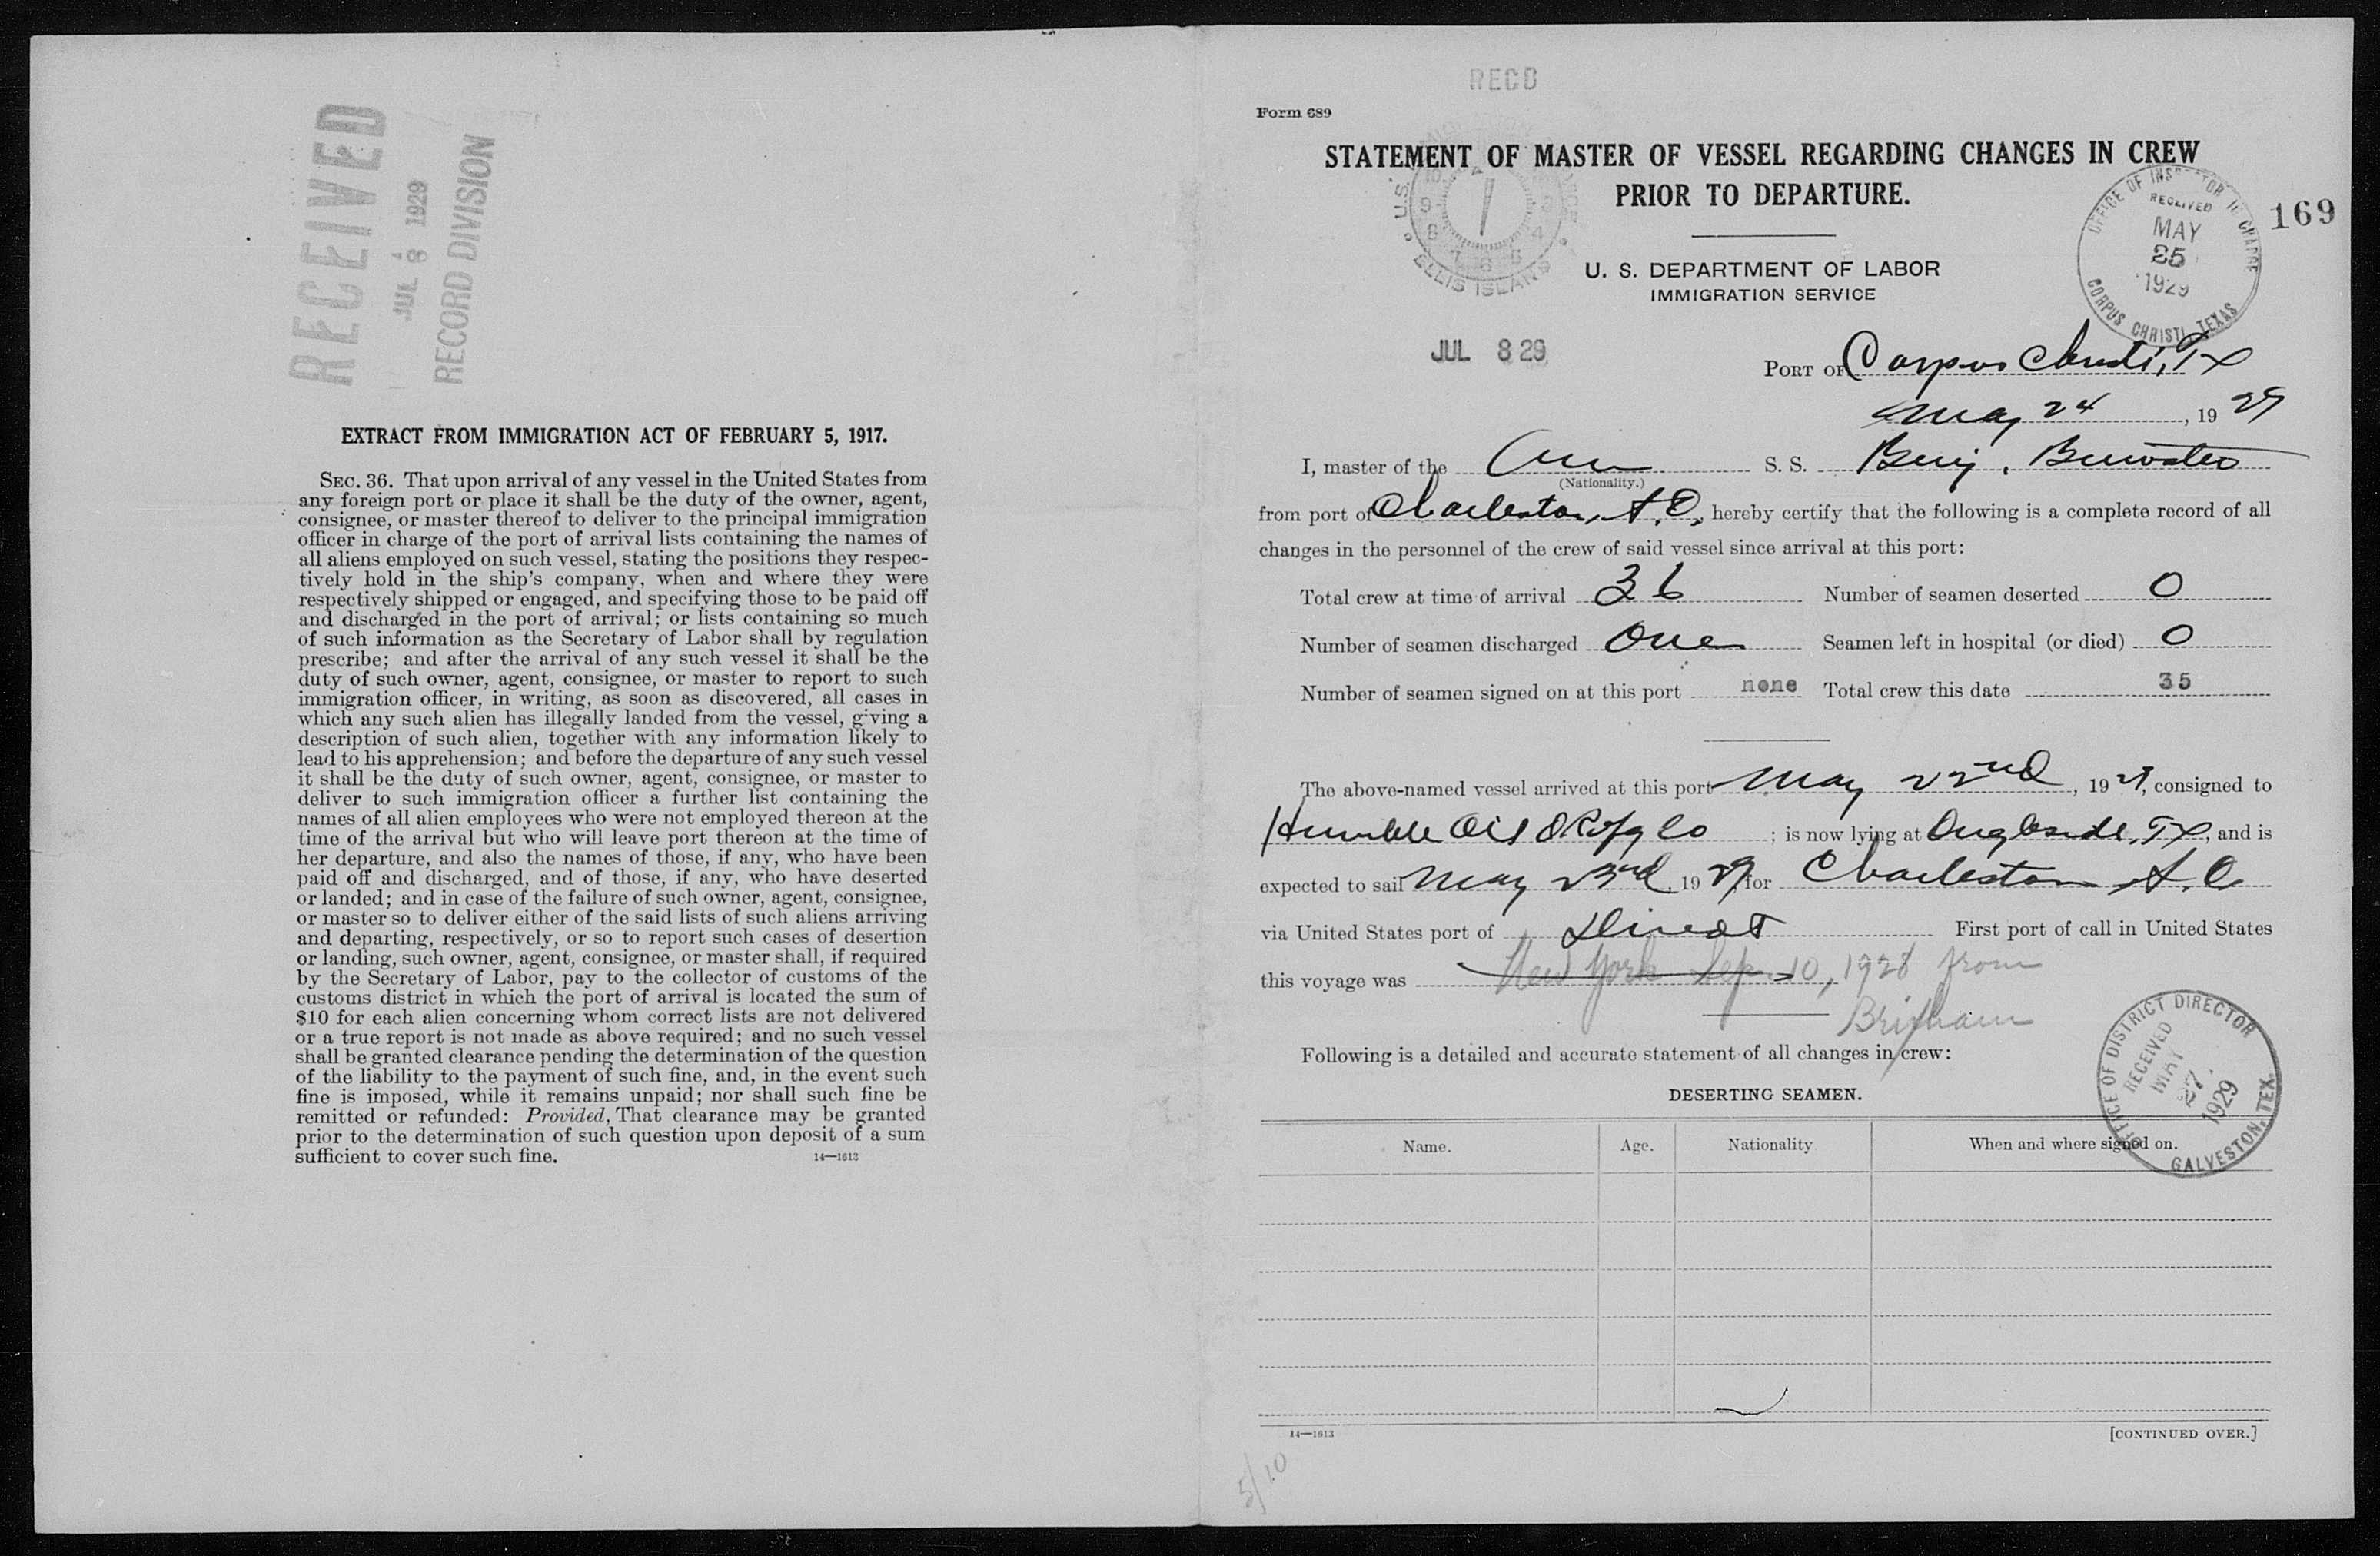 RECEIVED
JUL 8 1929
RECORD DIVISION
EXTRACT FROM IMMIGRATION ACT OF FEBRUARY 5, 1917.
SEC. 36. That upon arrival of any vessel in the United States from
any foreign port or place it shall be the duty of the owner, agent,
consignee, or master thereof to deliver to the principal immigration
officer in charge of the port of arrival lists containing the names of
all aliens employed on such vessel, stating the positions they respec-
tively hold in the ship's company, when and where they were
respectively shipped or engaged, and specifying those to be paid off
and discharged in the port of arrival; or lists containing so much
of such information as the Secretary of Labor shall by regulation
prescribe; and after the arrival of any such vessel it shall be the
duty of such owner, agent, consignee, or master to report to such
immigration officer, in writing, as soon as discovered, all cases in
which any such alien has illegally landed from the vessel, giving a
description of such alien, together with any information likely to
lead to his apprehension; and before the departure of any such vessel
it shall be the duty of such owner, agent, consignee, or master to
deliver to such immigration officer a further list containing the
names of all alien employees who were not employed thereon at the
time of the arrival but who will leave port thereon at the time of
her departure, and also the names of those, if any, who have been
paid off and discharged, and of those, if any, who have deserted
or landed; and in case of the failure of such owner, agent, consignee,
or master so to deliver either of the said lists of such aliens arriving
and departing, respectively, or so to report such cases of desertion
or landing, such owner, agent, consignee, or master shall, if required
by the Secretary of Labor, pay to the collector of customs of the
customs district in which the port of arrival is located the sum of
$10 for each alien concerning whom correct lists are not delivered
or a true report is not made as above required; and no such vessel
shall be granted clearance pending the determination of the question
of the liability to the payment of such fine, and, in the event such
fine is imposed, while it remains unpaid; nor shall such fine be
remitted or refunded: Provided, That clearance may be granted
prior to the determination of such question upon deposit of a sum
sufficient to cover such fine.
14—1613
RECD
Form 689
STATEMENT OF MASTER OF VESSEL REGARDING CHANGES IN CREW
PRIOR TO DEPARTURE.
U.S. ELLIS ISLAND
OFFICE OF INSPECTOR IN CHARGE
RECEIVED
MAY
25
1929
CORPUS CHRISTI, TEXAS
169
U. S. DEPARTMENT OF LABOR
IMMIGRATION SERVICE
JUL 8 29
PORT OF Corpus Christi, Tx
May 24, 19 29
I, master of the Am S. S. Benj. Brewster
(Nationality.)
from port of Charleston, S.C., hereby certify that the following is a complete record of all
changes in the personnel of the crew of said vessel since arrival at this port:
Total crew at time of arrival 36 Number of seamen deserted 0
Number of seamen discharged One Seamen left in hospital (or died) 0
Number of seamen signed on at this port none Total crew this date 35
The above-named vessel arrived at this port May 22nd, 1929, consigned to
Humble Oil & Rfg Co; is now lying at Ingleside, Tx, and is
expected to sail May 23rd, 1929, for Charleston S.C.
via United States port of Direct First port of call in United States
this voyage was New York Sep. 10, 1928 from
Brixham
Following is a detailed and accurate statement of all changes in crew:
OFFICE OF DISTRICT DIRECTOR
RECEIVED
MAY
27
1929
GALVESTON, TEX.
DESERTING SEAMEN.
Name. Age. Nationality When and where signed on.
14—1613
[CONTINUED OVER.]
5/10